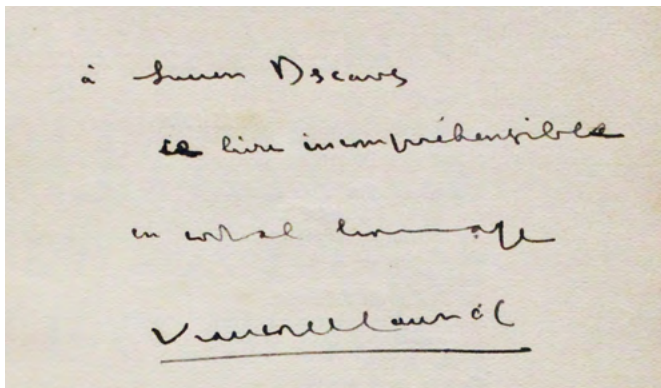 à Lucien Descaves
ce livre incompréhensible
en cordial hommage